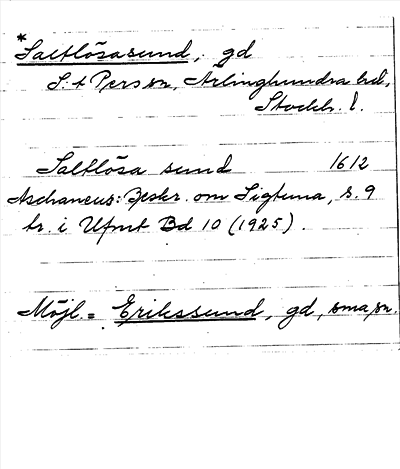 *
Saltlösasund, gd
S:t Pers sn, Ärlinghundra hd,
Stockh. l.
Saltlösa sund 1612
Aschaneus: Beskr. om Sigtuna, s. 9
tr. i Ufmt Bd 10 (1925).
Möjl. = Erikssund, gd, sma sn.